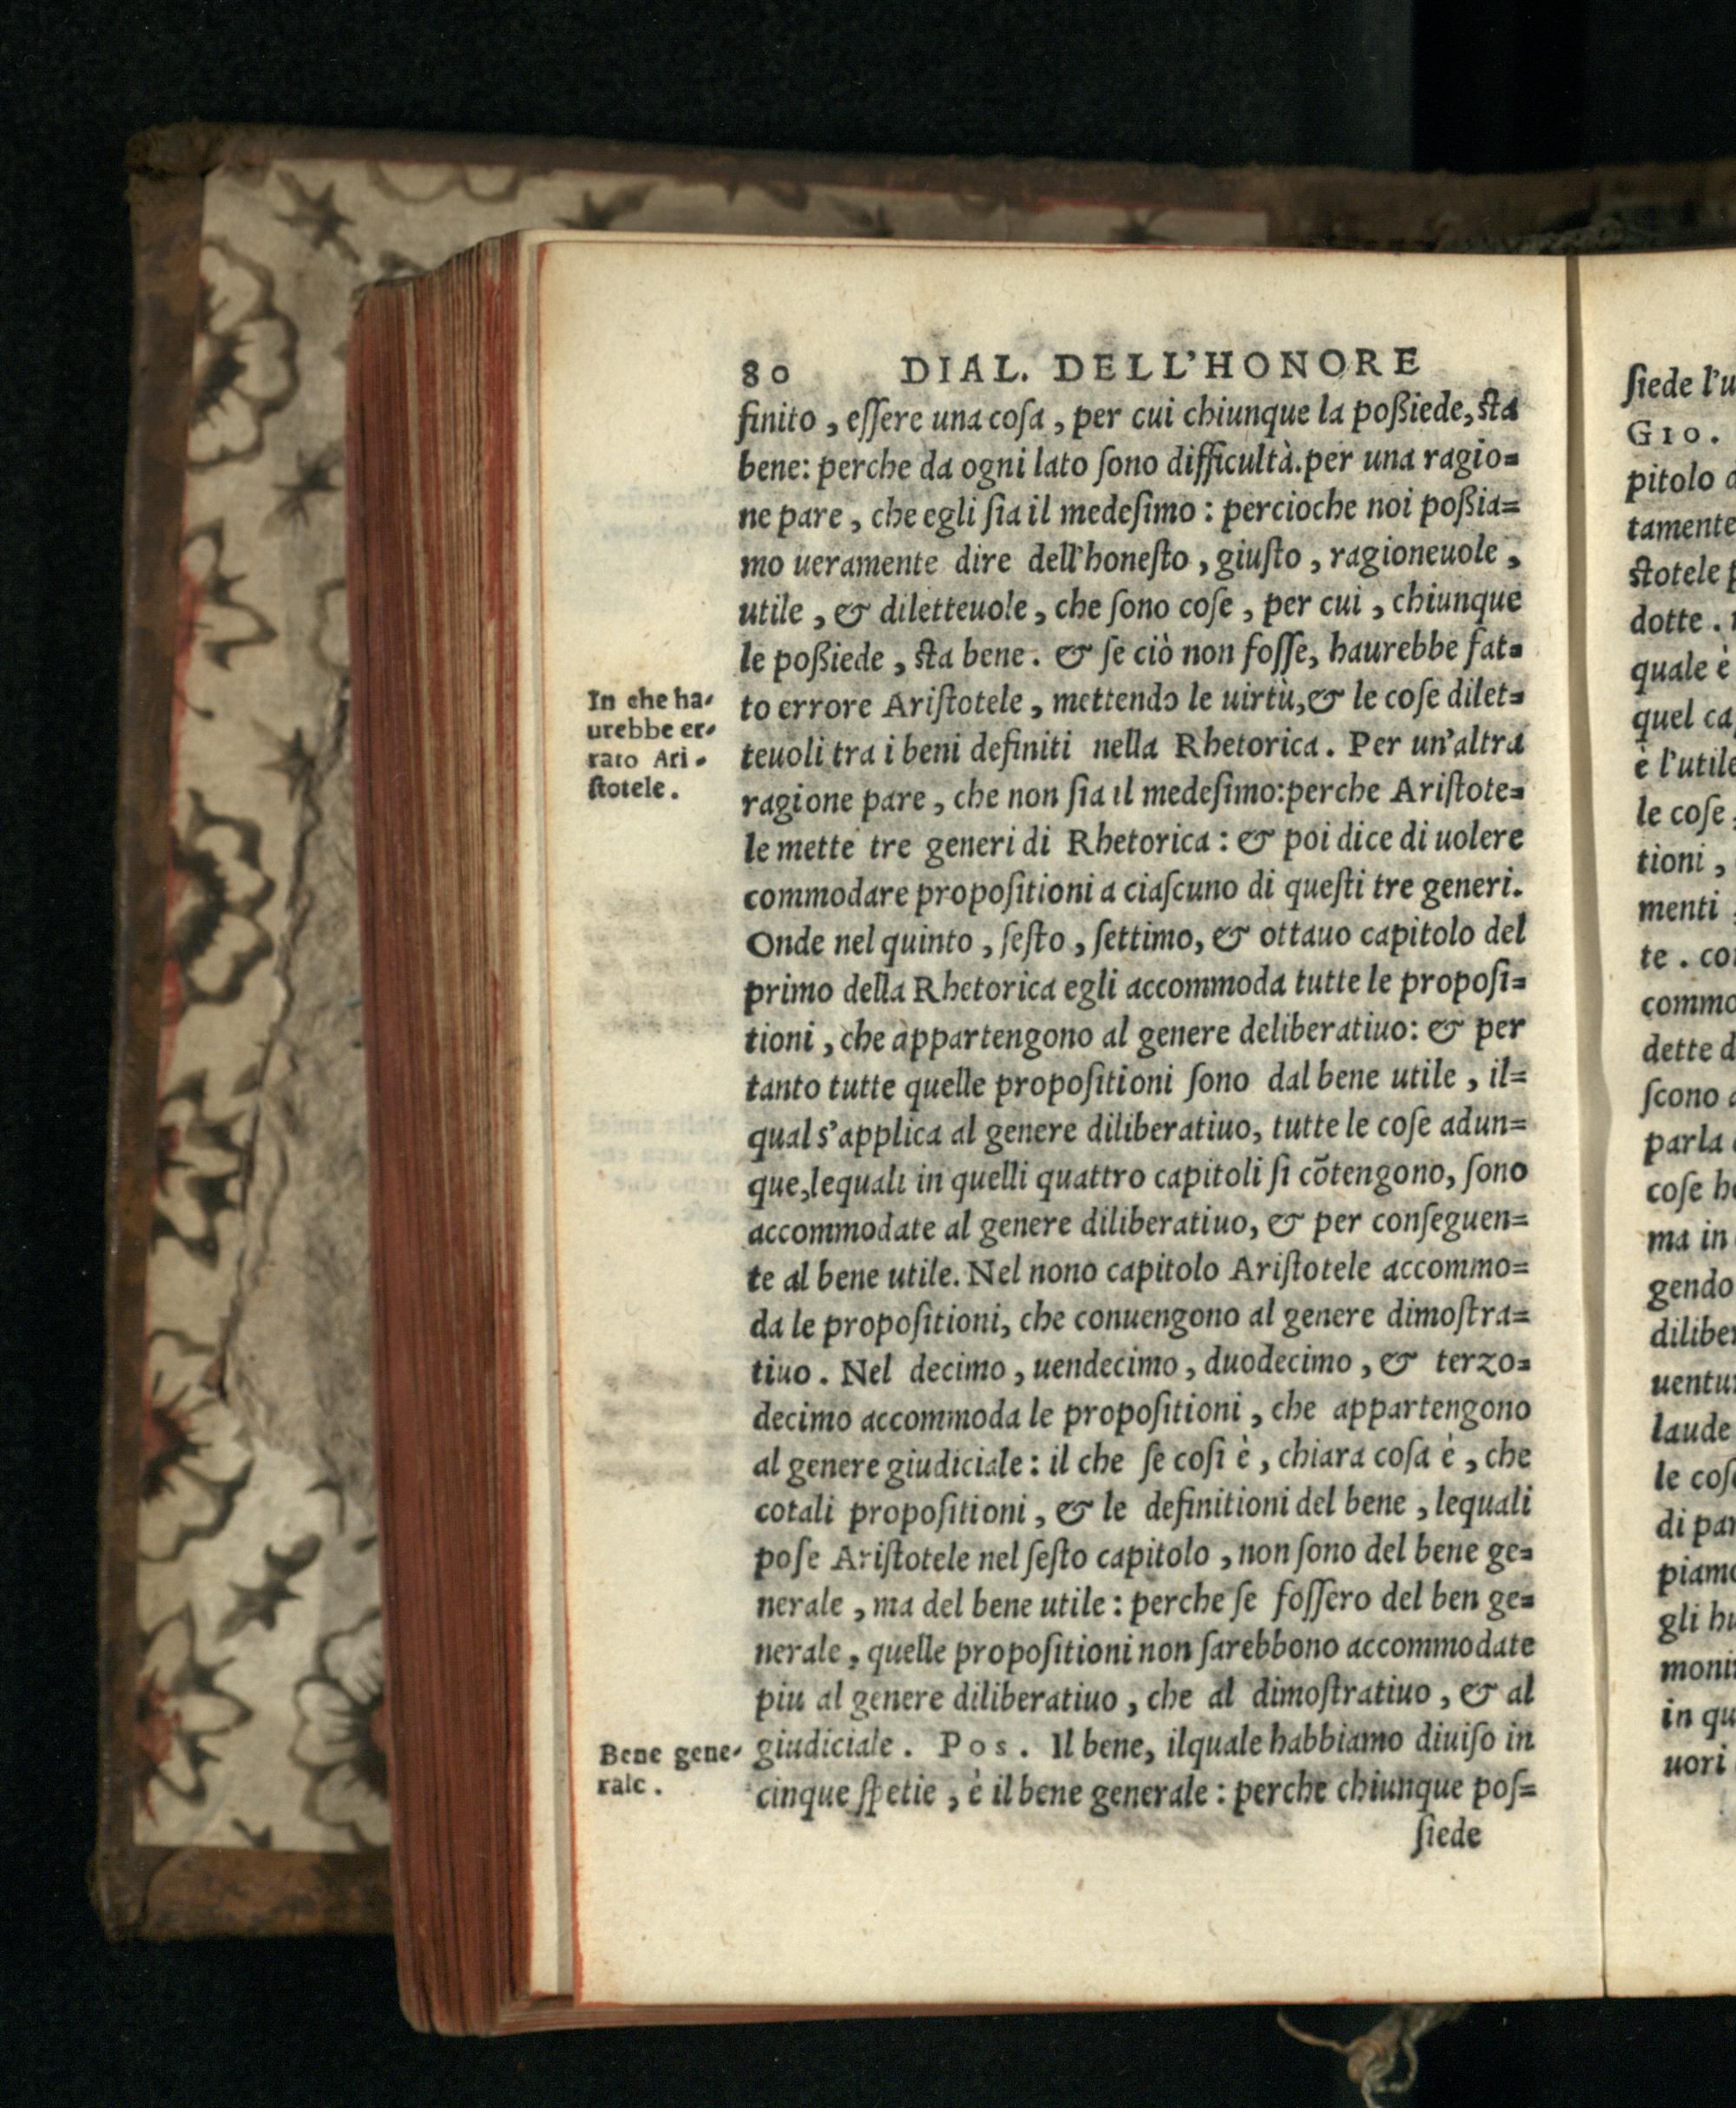 80 DIAL. DELL'HONORE
finito, eſſere una coſa, per cui chiunque la poßiede, ſta
bene: perche da ogni lato ſono difficultà. per una ragio=
ne pare, che egli ſia il medeſimo: percioche noi poßia=
mo ueramente dire dell'honeſto, giuſto, ragioneuole,
utile, & diletteuole, che ſono coſe, per cui, chiunque
le poßiede, ſta bene. & ſe ciò non foſſe, haurebbe fat=
In che ha-
urebbe er-
rato Ari-
ſtotele.
to errore Ariſtotele, mettendo le uirtù, & le coſe dilet=
teuoli tra i beni definiti nella Rhetorica. Per un'altra
ragione pare, che non ſia il medeſimo: perche Ariſtote=
le mette tre generi di Rhetorica: & poi dice di uolere
commodare propoſitioni a ciaſcuno di queſti tre generi.
Onde nel quinto, ſeſto, ſettimo, & ottauo capitolo del
primo della Rhetorica egli accommoda tutte le propoſi=
tioni, che appartengono al genere deliberatiuo: & per
tanto tutte quelle propoſitioni ſono dal bene utile, il=
qual s'applica al genere diliberatiuo, tutte le coſe adun=
que, lequali in quelli quattro capitoli ſi cõtengono, ſono
accommodate al genere diliberatiuo, & per conſeguen=
te al bene utile. Nel nono capitolo Ariſtotele accommo=
da le propoſitioni, che conuengono al genere dimoſtra=
tiuo. Nel decimo, uendecimo, duodecimo, & terzo=
decimo accommoda le propoſitioni, che appartengono
al genere giudiciale: il che ſe coſi è, chiara coſa è, che
cotali propoſitioni, & le definitioni del bene, lequali
poſe Ariſtotele nel ſeſto capitolo, non ſono del bene ge=
nerale, ma del bene utile: perche ſe foſſero del ben ge=
nerale, quelle propoſitioni non ſarebbono accommodate
piu al genere diliberatiuo, che al dimoſtratiuo, & al
Bene gene-
rale.
giudiciale. Pos. Il bene, ilquale habbiamo diuiſo in
cinque ſpetie, è il bene generale: perche chiunque poſ=
ſiede
ſiede l'u
Gio.
pitolo
tamente
ſtotele
dotte.
quale è
quel ca
è l'utile
le coſe
tioni,
menti
te. co
commo
dette d
ſcono
parla
coſe h
ma in
gendo
diliber
uentu
laude
le coſ
di par
piamo
gli hu
moni
in qu
uori